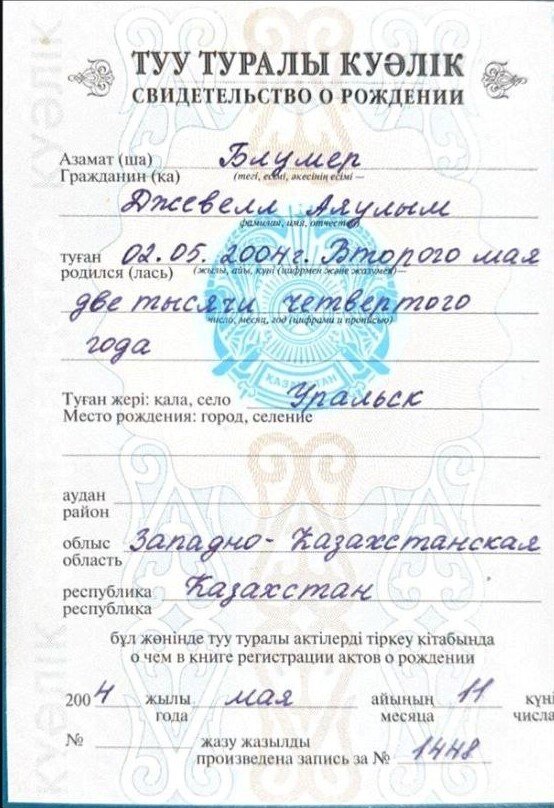 ТУУ ТУРАЛЫ КУӘЛІК
СВИДЕТЕЛЬСТВО О РОЖДЕНИИ
Азамат (ша) Блумер
Гражданин (ка) (тегі, есімі, әкесінің есімі —
Джевелл Аяулым
фамилия, имя, отчество)
туған 02.05.2004г. Второго мая
родился (лась) (жылы, айы, күні (цифрмен және жазумен) —
две тысячи четвертого
число, месяц, год (цифрами и прописью)
года
ҚАЗАҚСТАН
Туған жері: қала, село Уральск
Место рождения: город, селение
аудан
район
облыс Западно-Казахстанская
область
республика Казахстан
республика
бұл жөнінде туу туралы актілерді тіркеу кітабында
о чем в книге регистрации актов о рождении
2004 жылы мая айының 11 күні
года месяца числа
№ жазу жазылды
произведена запись за № 1448
КУӘЛІК
КУӘЛІК